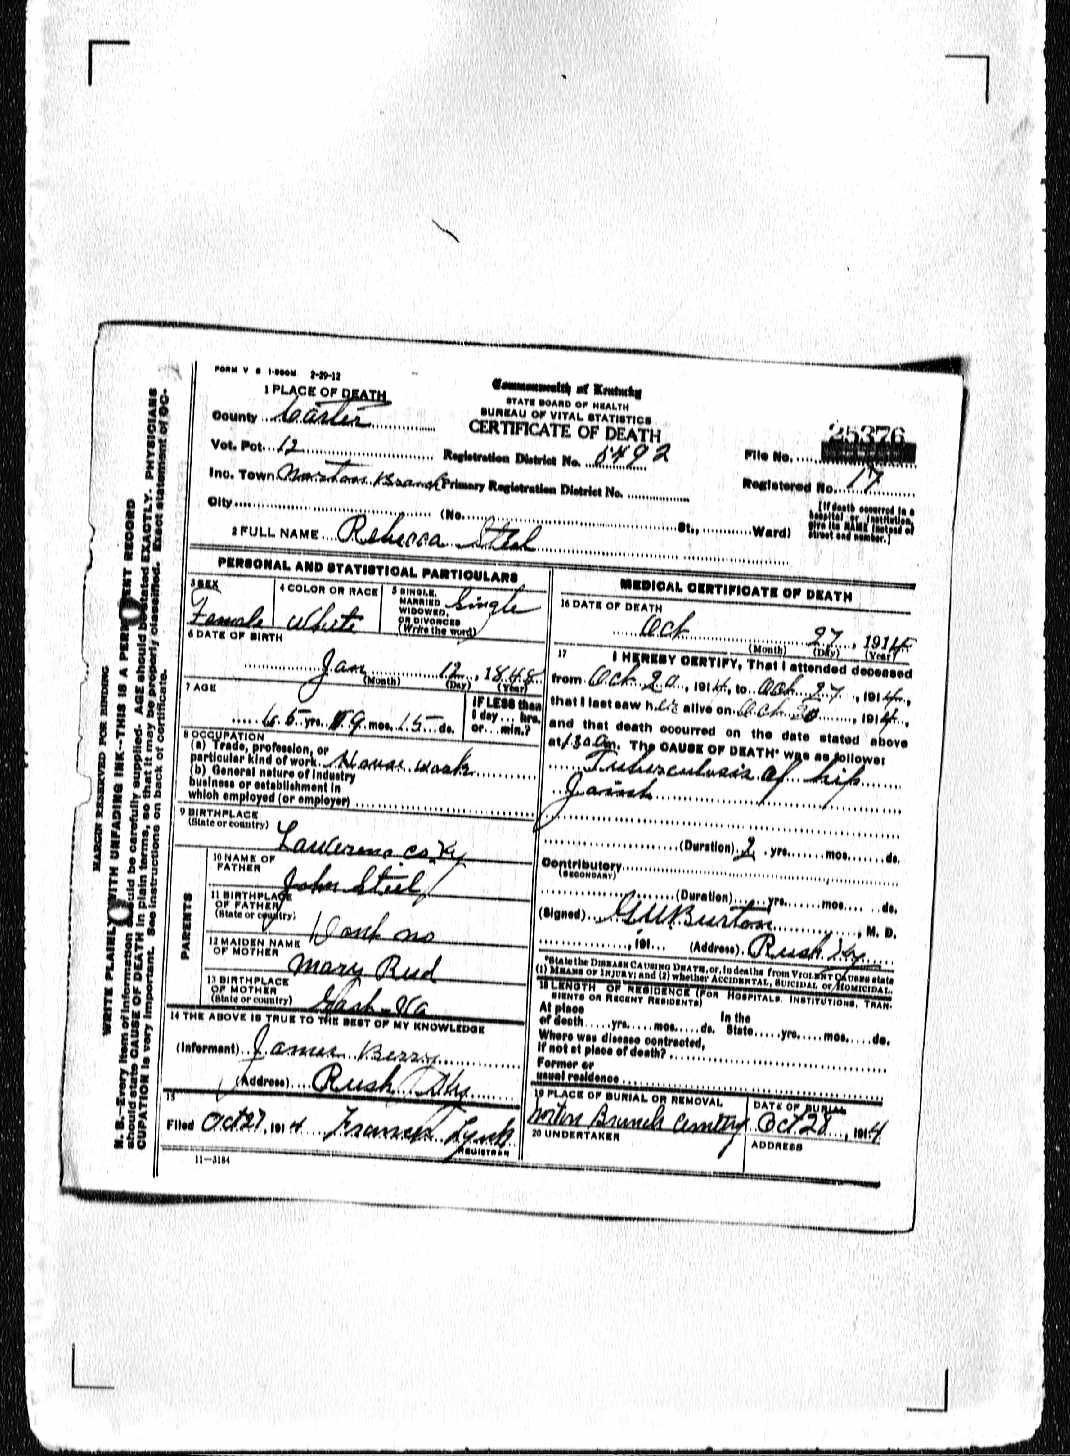 FORM V S 1-500M 2-29-12
1 PLACE OF DEATH
County Carter
Vot. Pct. 12
Inc. Town Norton Branch
City
(No. St., Ward)
Commonwealth of Kentucky
STATE BOARD OF HEALTH
BUREAU OF VITAL STATISTICS
CERTIFICATE OF DEATH
Registration District No. 5492
Primary Registration District No.
File No. 25376
Registered No. 17
[If death occurred in a
hospital or institution,
give its NAME instead of
street and number.]
2 FULL NAME Rebecca Steel
PERSONAL AND STATISTICAL PARTICULARS
3 SEX
Female
4 COLOR OR RACE
White
5 SINGLE,
MARRIED
WIDOWED,
OR DIVORCED
(Write the word)
Single
6 DATE OF BIRTH
Jan 12, 1848
(Month) (Day) (Year)
7 AGE
65 yrs. 9 mos. 15 ds.
IF LESS than
1 day... hrs.
or... min.?
8 OCCUPATION
(a) Trade, profession, or
particular kind of work. House work
(b) General nature of industry
business or establishment in
which employed (or employer)
9 BIRTHPLACE
(State or country)
Lawrence co Ky
PARENTS
10 NAME OF
FATHER
John Steel
11 BIRTHPLACE
OF FATHER
(State or country)
Dont no
12 MAIDEN NAME
OF MOTHER
Mary Rud
13 BIRTHPLACE
OF MOTHER
(State or country)
14 THE ABOVE IS TRUE TO THE BEST OF MY KNOWLEDGE
(Informant) James Berry
(Address) Rush Ky
15
Filed Oct 27, 1914 Lynk
REGISTRAR
11—3184
MEDICAL CERTIFICATE OF DEATH
16 DATE OF DEATH
Oct 27, 1914
(Month) (Day) (Year)
17 I HEREBY CERTIFY, That I attended deceased
from Oct 20, 1914, to Oct 27, 1914,
that I last saw her alive on Oct 20, 1914,
and that death occurred on the date stated above
at 1.30 am. The CAUSE OF DEATH* was as follows:
Tuberculosis of hip
Joint
(Duration) 2 yrs. mos. ds.
Contributory
(SECONDARY)
(Duration) yrs. mos. ds.
(Signed) G W Burton, M. D.
, 191 (Address) Rush Ky
*State the DISEASE CAUSING DEATH, or, in deaths from VIOLENT CAUSES state
(1) MEANS OF INJURY; and (2) whether ACCIDENTAL, SUICIDAL or HOMICIDAL.
18 LENGTH OF RESIDENCE (FOR HOSPITALS, INSTITUTIONS, TRAN-
SIENTS OR RECENT RESIDENTS)
At place In the
of death yrs. mos. ds. State yrs. mos. ds.
Where was disease contracted,
if not at place of death?
Former or
usual residence
19 PLACE OF BURIAL OR REMOVAL
Norton Branch Cemetry
DATE OF BURIAL
Oct 28, 1914
20 UNDERTAKER
ADDRESS
MARGIN RESERVED FOR BINDING
WRITE PLAINLY WITH UNFADING INK--THIS IS A PERMANENT RECORD
N. B.—Every item of information should be carefully supplied. AGE should be stated EXACTLY. PHYSICIANS
should state CAUSE OF DEATH in plain terms, so that it may be properly classified. Exact statement of OC-
CUPATION is very important. See instructions on back of certificate.